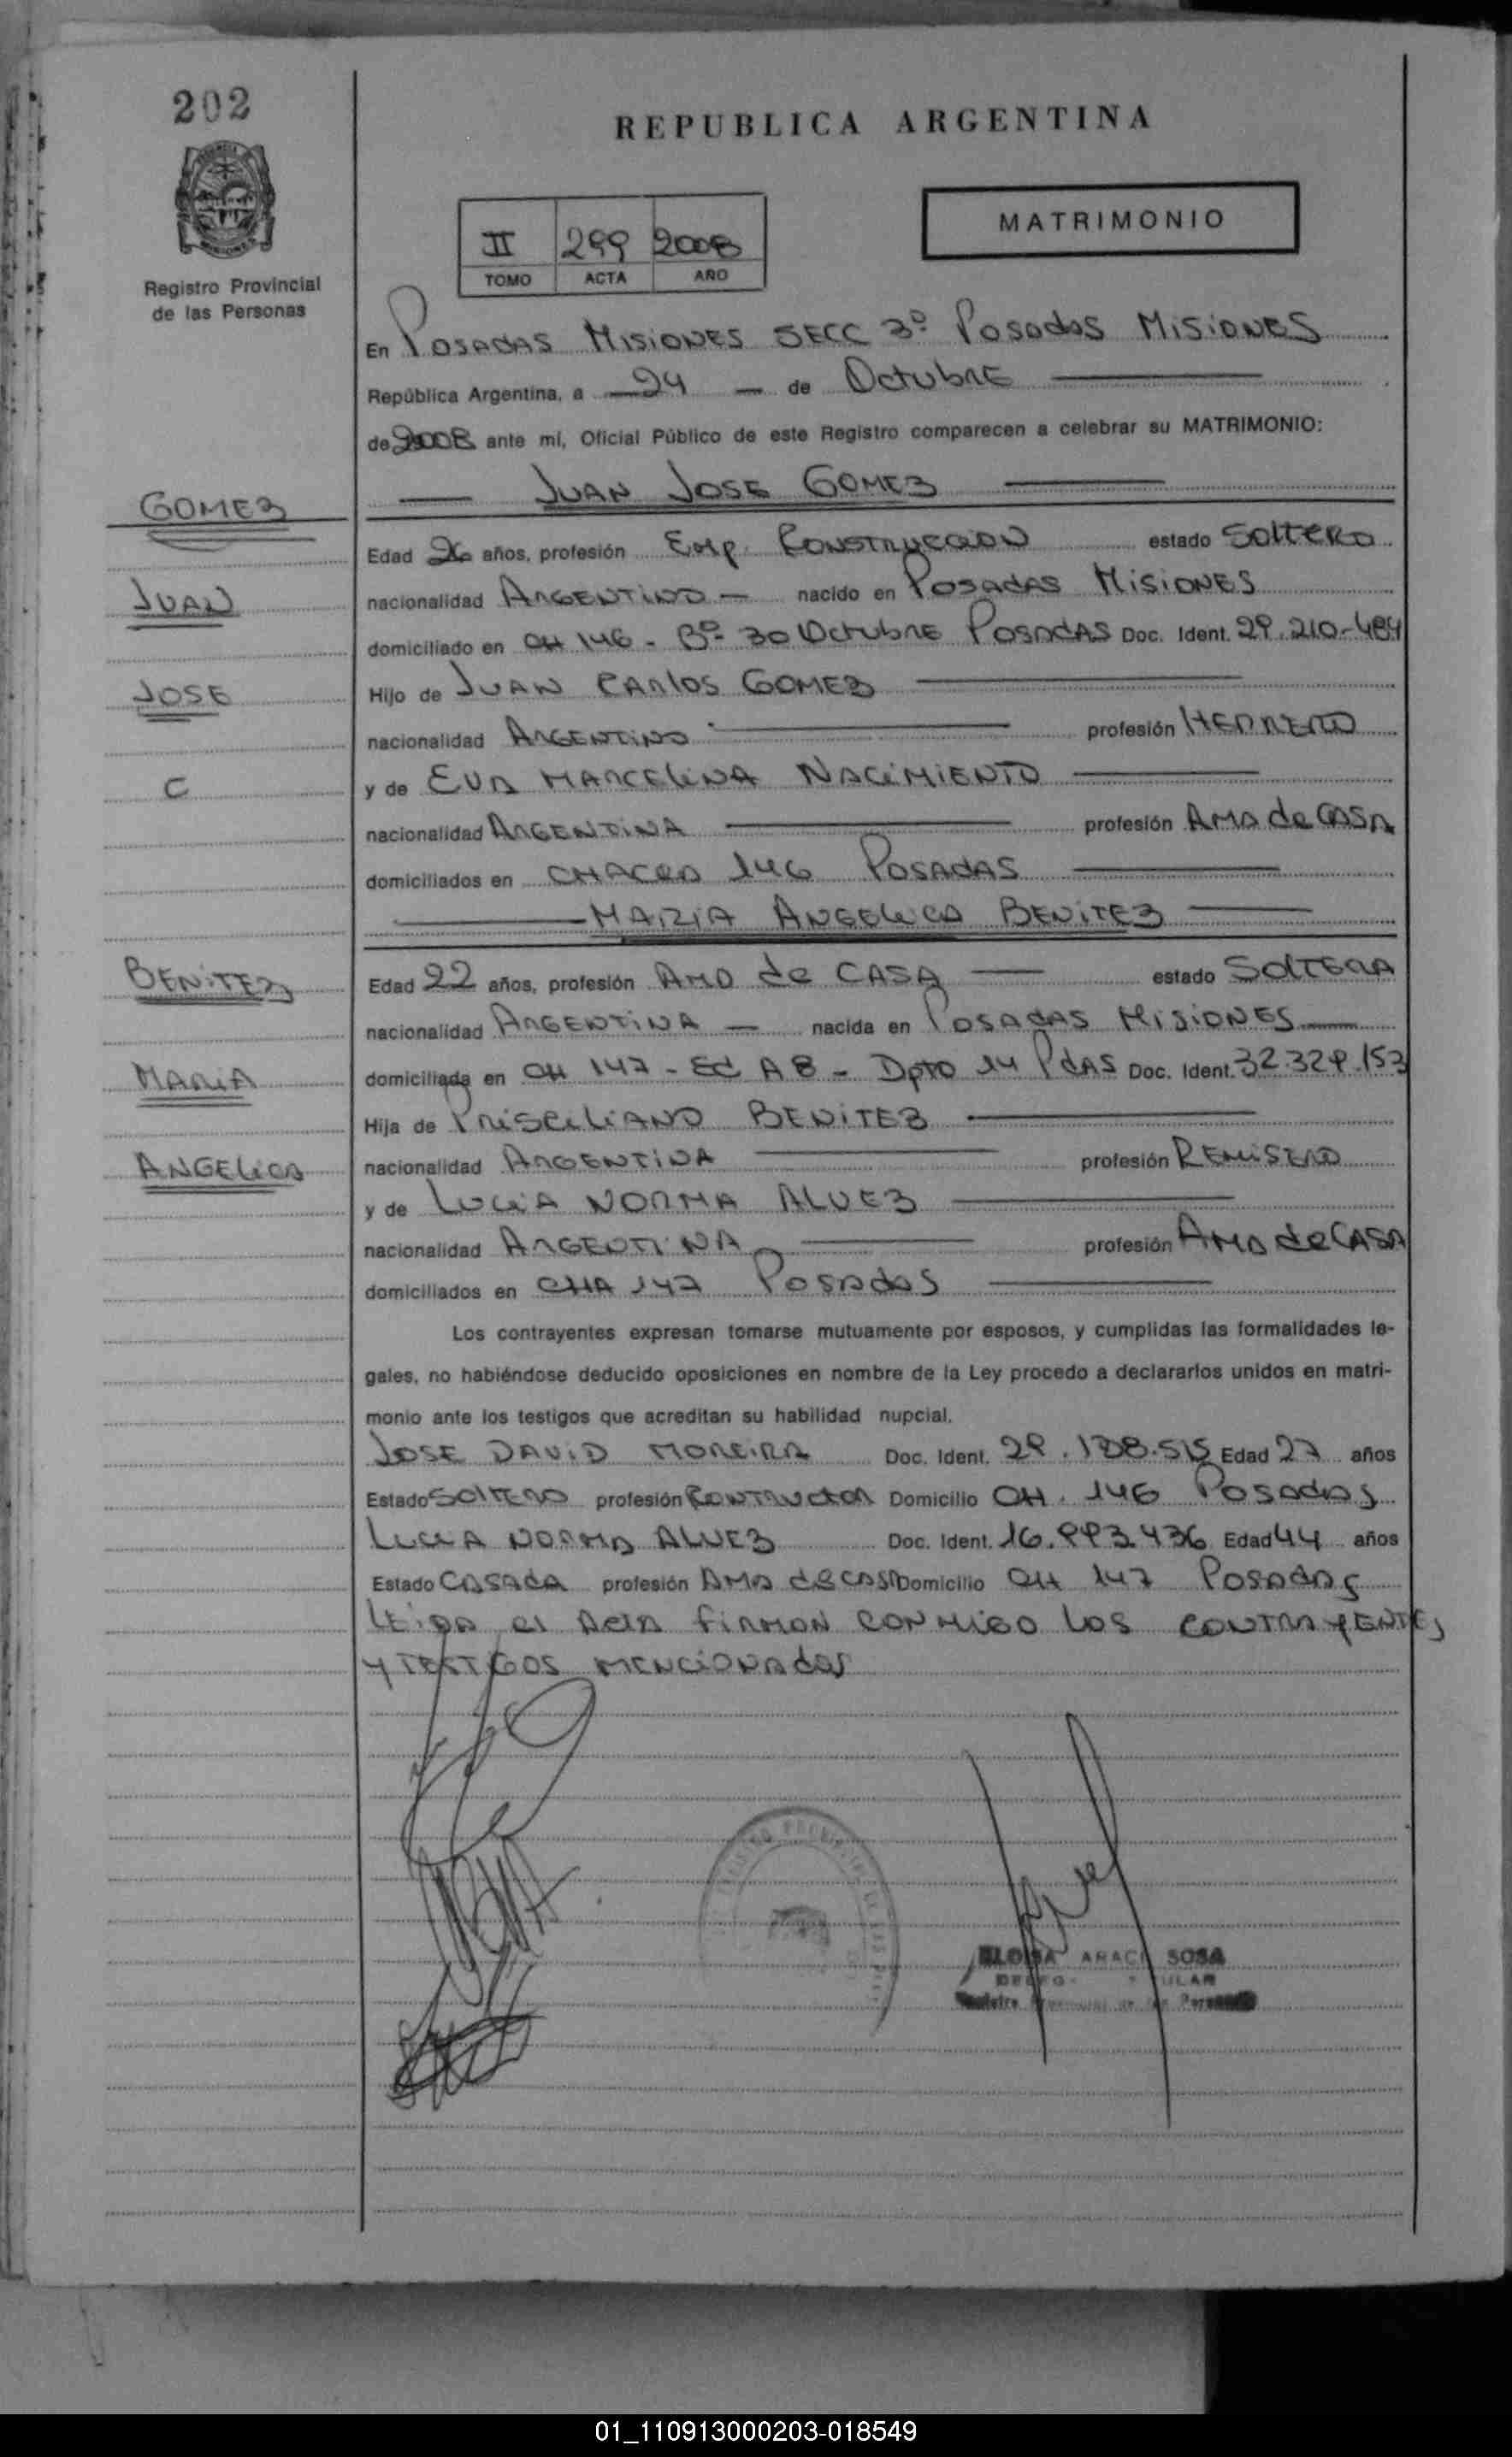 202
REPUBLICA ARGENTINA
MATRIMONIO
II 299 2008
TOMO ACTA AÑO
Registro Provincial
de las Personas
En POSADAS MISIONES SECC 3º Posadas MISIONES
República Argentina, a 24 de Octubre
de 2008 ante mí, Oficial Público de este Registro comparecen a celebrar su MATRIMONIO:
JUAN JOSE GOMEZ
GOMEZ
Edad 26 años, profesión Emp. CONSTRUCCION estado SOLTERO
JUAN
nacionalidad ARGENTINO nacido en POSADAS MISIONES
domiciliado en CH 146 - Bº 30 Octubre POSADAS Doc. Ident. 29.210-484
JOSE
Hijo de JUAN CARLOS GOMEZ
nacionalidad ARGENTINO profesión HERRERO
C
y de EVA MARCELINA NACIMIENTO
nacionalidad ARGENTINA profesión AMA de CASA
domiciliados en CHACRA 146 POSADAS
MARIA ANGELICA BENITEZ
BENITEZ
Edad 22 años, profesión AMA de CASA estado SOLTERA
nacionalidad ARGENTINA nacida en POSADAS MISIONES
MARIA
domiciliada en CH 147 - Ed A 8 - Dpto 14 PdAS Doc. Ident. 32.329.153
Hija de PRISCILIANO BENITEZ
ANGELICA
nacionalidad ARGENTINA profesión REMISERO
y de LUCIA NORMA ALVEZ
nacionalidad ARGENTINA profesión AMA de CASA
domiciliados en CHA 147 Posadas
Los contrayentes expresan tomarse mutuamente por esposos, y cumplidas las formalidades le-
gales, no habiéndose deducido oposiciones en nombre de la Ley procedo a declararlos unidos en matri-
monio ante los testigos que acreditan su habilidad nupcial.
JOSE DAVID MOREIRA Doc. Ident. 29.188.515 Edad 27 años
Estado SOLTERO profesión CONTRUCTOR Domicilio CH. 146 Posadas
LUCIA NORMA ALVEZ Doc. Ident. 16.993.436 Edad 44 años
Estado CASADA profesión AMA de CASA Domicilio CH 147 Posadas
LEIDA el ACTA FIRMAN CONMIGO LOS CONTRAYENTES
Y TESTIGOS MENCIONADOS
SOSA
01_110913000203-018549